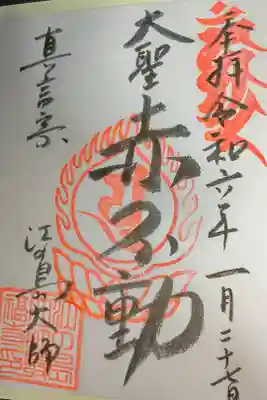 奉拝令和六年一月二十七日
大聖赤不動
真言宗
江島大師